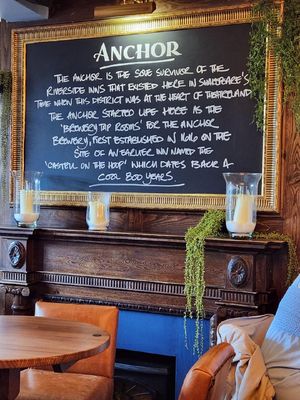 ANCHOR
THE ANCHOR IS THE SOLE SURVIVOR OF THE
RIVERSIDE INNS THAT EXISTED HERE IN SHAKESPEARE'S
TIME WHEN THIS DISTRICT WAS AT THE HEART OF THEATRELAND.
THE ANCHOR STARTED LIFE HERE AS THE
'BREWERY TAP ROOMS' FOR THE ANCHOR
BREWERY, FIRST ESTABLISHED IN 1616 ON THE
SITE OF AN EARLIER INN NAMED THE
'CASTELL ON THE HOOP' WHICH DATES BACK A
COOL 800 YEARS.